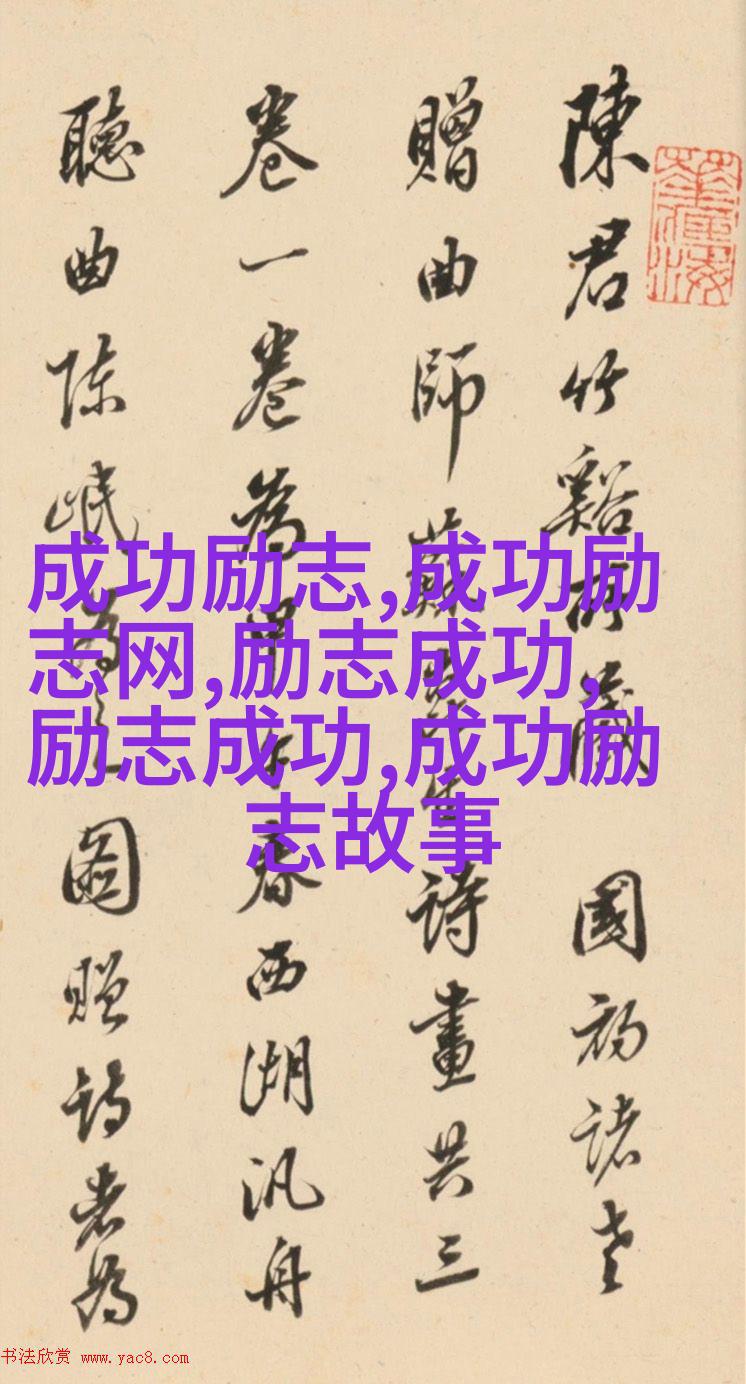 陳君竹谿所藏 國初諸老
贈曲師蘇崑生詩畫共三
卷一卷為甲午春西湖汎舟
聽曲陳岷為之圖贈詩者為
成功励志,成功励
志网,励志成功,
励志成功,成功励
志故事
书法欣赏 www.yac8.com